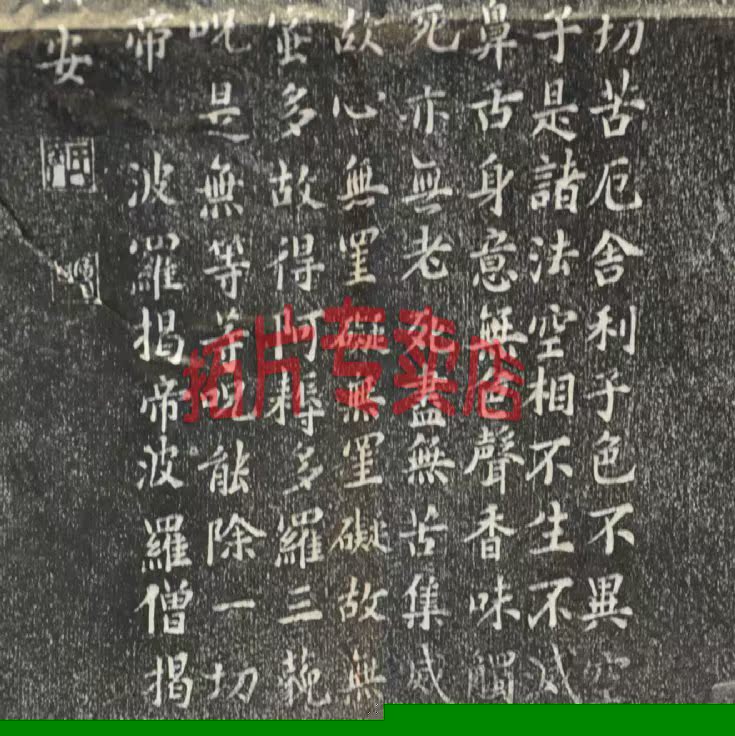 切苦厄舍利子色不異空
子是諸法空相不生不滅
鼻舌身意無色聲香味觸
死亦無老死盡無苦集滅
故心無罣礙無罣礙故無
蜜多故得阿耨多羅三藐
呪是無等等呪能除一切
帝波羅揭帝波羅僧揭
安
拓片专卖店